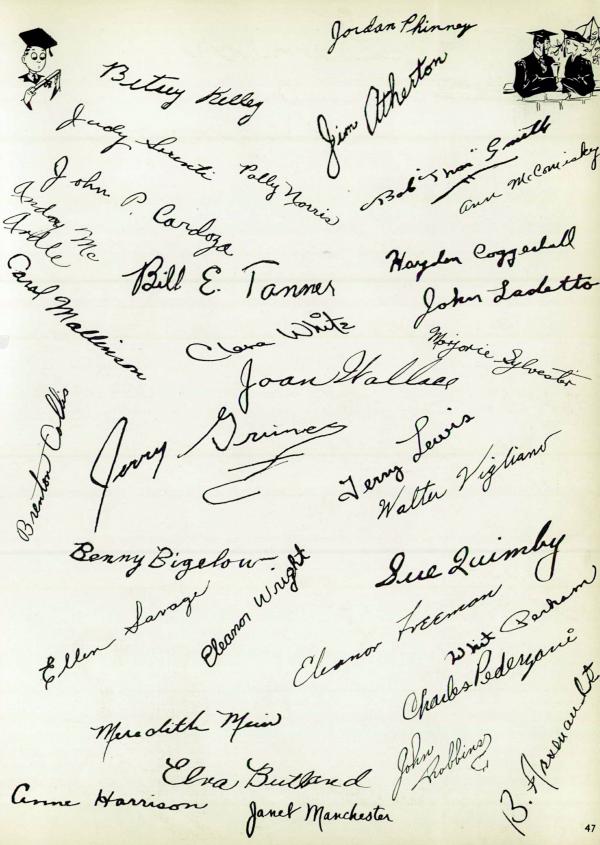 Jordan Phinney
Betsy Kelley
Jim Atherton
Judy
Polly Norris
Bob "Thor" Smith
Ann McComisky
John P. Cardoza
Andrew Mc
Ardle
Bill E. Tanner
Hayden Coggeshall
John Ladetto
Carol Mallinson
Clara White
Marjorie Sylvester
Joan Wallace
Brenton Collis
Jerry Grimes
Terry Lewis
Walter Vigliano
Benny Bigelow
Sue Quimby
Ellen Savage
Eleanor Wright
Eleanor Freeman
Whit Parham
Charles Pedergani
Meredith Muir
John
Robbins
B. Arsenault
Elva Butland
Anne Harrison
Janet Manchester
47